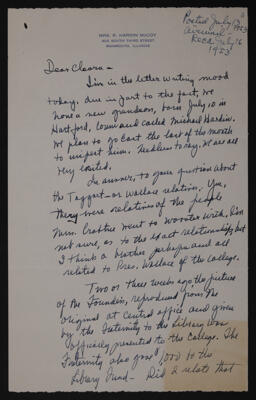 Posted July
airmail
Recd July 16
1953
MRS. R. HARDIN McCOY
402 SOUTH THIRD STREET
MONMOUTH, ILLINOIS
Dear Cleora -
I'm in the letter writing mood
today. Due in part to the fact, we
have a new grandson, born July 10 in
Hartford, Conn and called Michael Hardin.
We plan to go East the last of the month
to inspect him. Needless to say, we are all
very excited.
In answer, to your question about
the Taggart - or Wallace relation. Yes,
they were relations of the people
Mrs. went to Wooster with. I'm
not sure, as to the exact relationship, but
I think a brother perhaps and all
related to Pres. Wallace of the College.
Two or three weeks ago the picture
of the Founders, reproduced from the
original at Central office and given
by the Fraternity to the Library was
officially presented to the College. The
Fraternity also gave 1,000 to the
Library Fund - Did I relate that